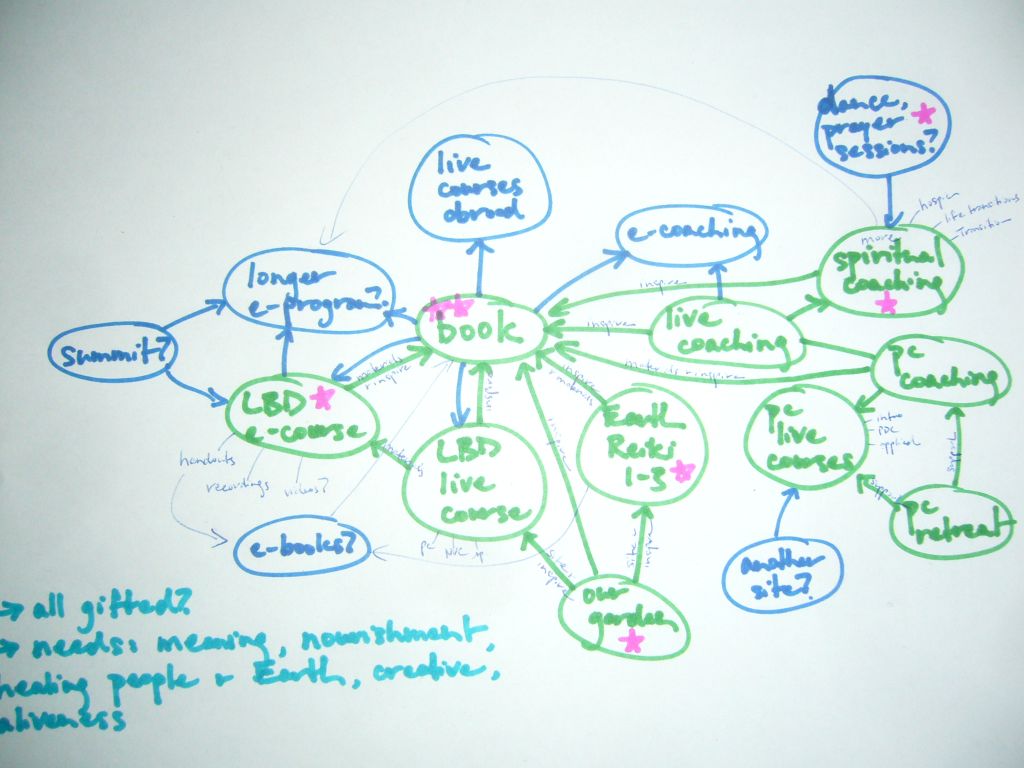 dance,
prayer
sessions?
live
courses
abroad
hospice
life transitions
Transition
e-coaching
more
spiritual
coaching
longer
e-program?
inspire
book
inspire
live
coaching
summit?
materials
+ inspire
materials + inspire
inspire
+ materials
pc
coaching
LBD
e-course
LBD
live
course
Earth
Reiki
1-3
pc
live
courses
intro
PDC
applied
handouts
recordings
videos?
inspire
pc
retreat
e-books?
pc
NVC
another
site?
inspire
our
garden
→ all gifted?
→ needs: meaning, nourishment,
healing people + Earth, creative,
aliveness